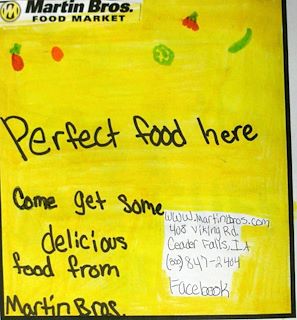 Martin Bros.
FOOD MARKET
Perfect food here
Come get some
delicious
food from
Martin Bros.
www.martinbros.com
408 Viking Rd.
Ceader Falls, IA
(800) 847-2404
Facebook